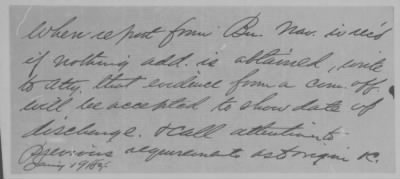 When report from Bu. Nav. is rec'd
if nothing add. is obtained, write
to atty. that evidence from a com. off.
will be accepted to show date of
discharge. & call attention to
previous requirements as to origin &c.